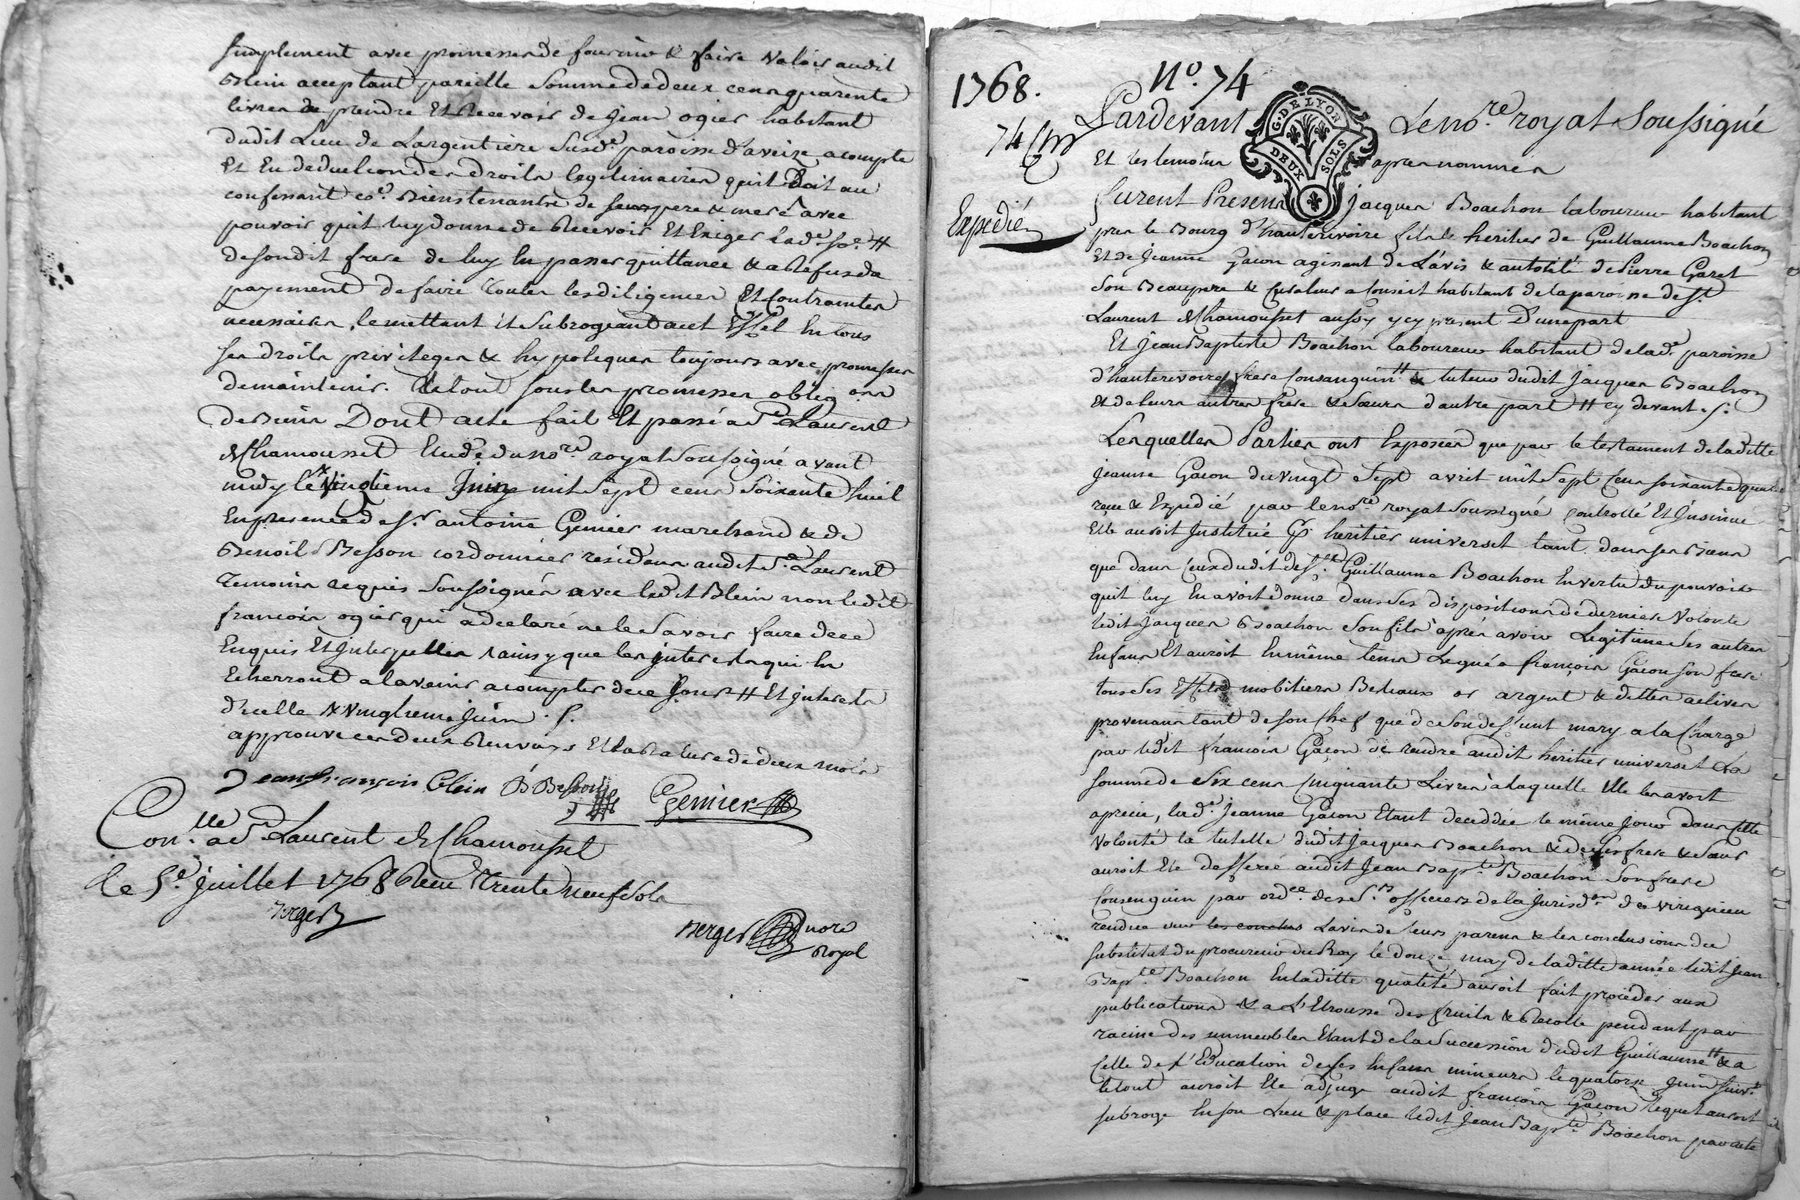 simplement avec promesse de fournir & faire valoir audit
Blein acceptant pareille somme de deux cens quarente
livres de prendre Et Recevoir de jean ogier habitant
dudit Lieu de Largentiere susd.e paroisse d'aveize acompte
Et En deduction des droits legitimaires qu'il Doit au
confessant co.e Bienstenant de ses pere & mere avec
pouvoir qu'il luy donne de Recevoir Et Exiger lad.e so.e #
desondit frere de luy En passer quittance & a Refus de
payement de faire toutes les diligences Et Contraintes
necessaires, le mettant Et Subrogeant a cet Effet En tous
ses droits privileges & hypoteques toujours avec promesses
de maintenir. Le tout sous les promesses oblig.ons
de Biens Dont acte fait Et passé a S.t Laurent
de Chamousset Etude du no.re royal Soussigné avant
midy le vingtieme Juin mil Sept cens Soixante huit
En presence de S.r antoine Genier marchand & de
Benoit Besson cordonnier residens audit S.t Laurent
Temoins requis Soussignés avec ledit Blein non ledit
francois ogier qui a declaré ne le Savoir faire de ce
Enquis Et Interpellés ainsy que les interets qui En
Echerront a lavenir a compter de ce jour # Et interets
d'icelle & vingtieme juin . /.
approuve ces deux Renvoys Et la Rature de deux mots
Jean françois Blein B Besson Genier
Con.lle a S.t Laurent de Chamousset
le 5.e juillet 1768 Reçu Trente neuf sols
Berger
Berger nore
Royal
1768. N.o 74
74
Expedié
G. DE LYON
DEUX SOLS
Pardevant Le no.re royal Soussigné
Et les temoins apres nommés
furent Presens jacques Boachon laboureur habitant
pres le Bourg d'hauterivoire fils & heritier de Guillaume Boachon
Et de jeanne Gacon agissant de L'avis & autorité de Pierre Garet
Son Beaupere & Curateur a Conseil habitant de la paroisse de S.t
Laurent de Chamousset aussy ycy present D'une part
Et Jean Baptiste Boachon laboureur habitant de lad.e paroisse
d'hauterivoire frere Consanguin # & tuteur dudit jacques Boachon
Et de leurs autres frere & sœurs d'autre part # cy devant ./.
Lesquelles Parties ont Exposées que par le testament de laditte
jeanne Gacon du vingt Sept avril mil Sept Cens soixante quatre
reçu & Expedié par le no.re royal Soussigné Controllé Et Insinué
Elle auroit Institué heritier universel tant dans ses Biens
que dans Ceux dudit def.t Guillaume Boachon En vertu du pouvoir
qu'il luy En avoit donné dans ses dispositions de derniere Volonté
ledit jacques Boachon Son fils après avoir Legitimé Ses autres
Enfans Et auroit En même tems Legué a françois Gacon Son frere
tous ses Effets mobiliers Bestiaux or argent & dettes actives
provenans tant de son Chef que de son deffunt mary a la Charge
par ledit francois Gacon de rendre audit heritier universel La
somme de Six cens Cinquante Livres a laquelle Elle les avoit
aprecié, lad.e Jeanne Gacon Etant decedée le même jour dans cette
Volonté la tutelle dudit jacques Boachon & de ses frere & sœurs
auroit Eté defferée audit Jean Bap.te Boachon Son frere
Consanguin par ord.ce de mes S.rs officiers de la Jurisd.on de
rendue sur les conclus Lavis de leurs parens & les conclusions du
substitut du procureur du Roy le douze may de laditte année ledit Jean
Bap.te Boachon En laditte qualité auroit fait procéder aux
publications & a L'Etrousse des fruits & Recolte pendant par
racine des immeubles Etant de la Succession dudit Guillaume # & a
Celle de l'Education des Enfans mineurs le quatorze juin suiv.t
le tout auroit Eté adjugé audit françois Gacon lequel auroit
subrogé En son Lieu & place ledit Jean Bap.te Boachon par acte